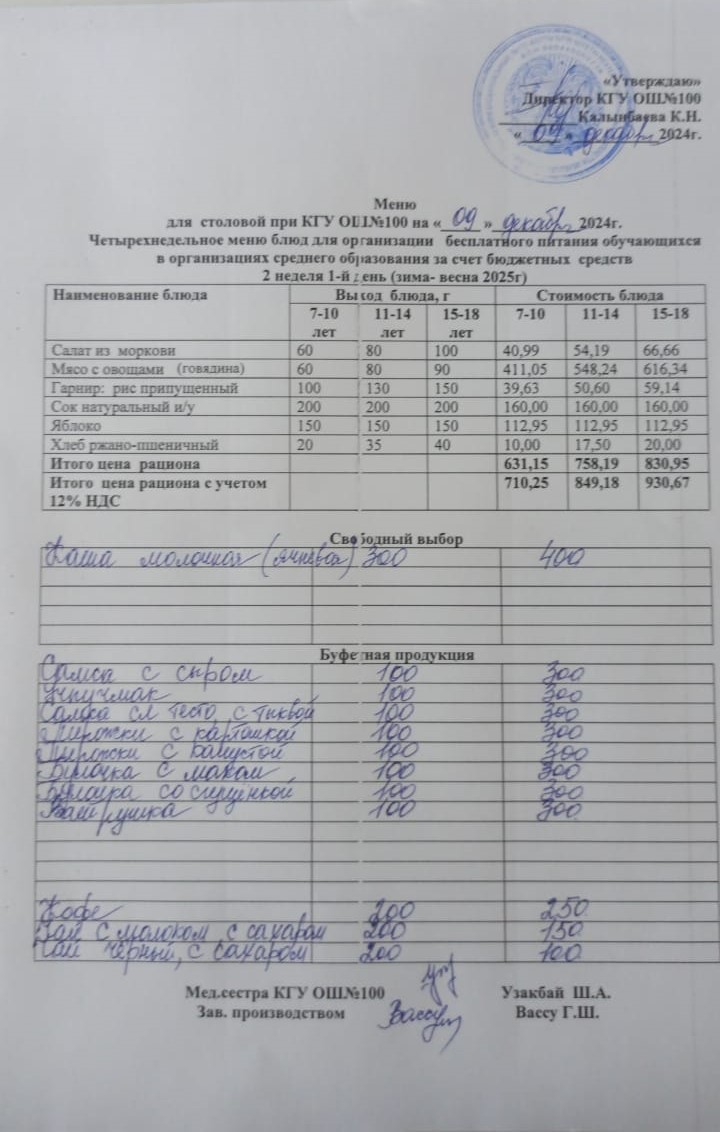 «Утверждаю»
Директор КГУ ОШ№100
Калынбаева К.Н.
« 09 » декабрь 2024г.
Меню
для столовой при КГУ ОШ№100 на « 09 » декабрь 2024г.
Четырехнедельное меню блюд для организации бесплатного питания обучающихся
в организациях среднего образования за счет бюджетных средств
2 неделя 1-й день (зима- весна 2025г)
Наименование блюда Выход блюда, г Стоимость блюда
7-10 лет 11-14 лет 15-18 лет 7-10 11-14 15-18
Салат из моркови 60 80 100 40,99 54,19 66,66
Мясо с овощами (говядина) 60 80 90 411,05 548,24 616,34
Гарнир: рис припущенный 100 130 150 39,63 50,60 59,14
Сок натуральный и/у 200 200 200 160,00 160,00 160,00
Яблоко 150 150 150 112,95 112,95 112,95
Хлеб ржано-пшеничный 20 35 40 10,00 17,50 20,00
Итого цена рациона 631,15 758,19 830,95
Итого цена рациона с учетом 710,25 849,18 930,67
12% НДС
Свободный выбор
Каша молочная (ячневая) 300 400
Буфетная продукция
Самса с сыром 100 300
Учпучмак 100 300
Самса сл тесто, с тыквой 100 300
Пирожки с картошкой 100 300
Пирожки с капустой 100 300
Булочка с маком 100 300
Булочка со сгущенкой 100 300
Ватрушка 100 300
Кофе 200 250
Чай с молоком, с сахаром 200 150
Чай черный, с сахаром 200 100
Мед.сестра КГУ ОШ№100 Узакбай Ш.А.
Зав. производством Вассу Г.Ш.